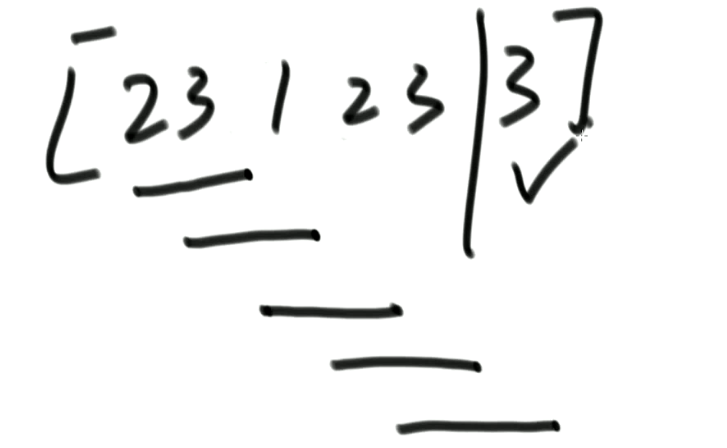 [ 2 3 1 2 3 | 3 ]